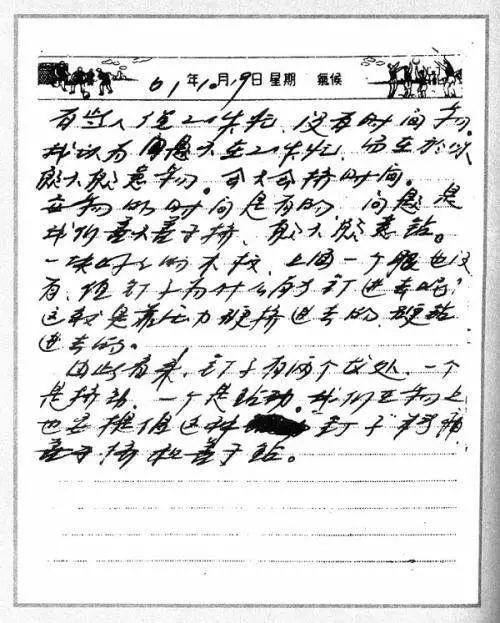 61年10月19日 星期 氣候
有些人说工作忙、没有时间学习。
我认为问题不在工作忙、而在於你
愿不愿意学习。会不会挤时间。
要学习的时间是有的、问题是
我们善不善于挤、愿不愿意钻。
一块好好的木板、上面一个眼也没
有、但钉子为什么能钉进去呢?
这就是靠压力硬挤进去的、硬钻
进去的。
由此看来、钉子有两个长处、一个
是挤劲、一个是钻劲。我们在学习上
也要提倡这种钉子精神
善于挤和善于钻。